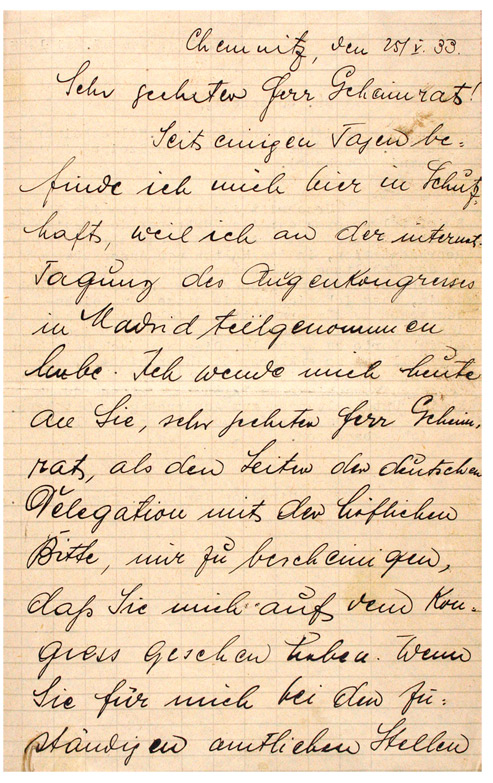 Chemnitz, den 25/V. 33.
Sehr geehrter Herr Geheimrat!
Seit einigen Tagen be-
finde ich mich hier in Schutz-
haft, weil ich an der internat.
Tagung des Augenkongresses
in Madrid teilgenommen
habe. Ich wende mich heute
an Sie, sehr geehrter Herr Geheim-
rat, als den Leiter der deutschen
Delegation mit der höflichen
Bitte, mir zu bescheinigen,
daß Sie mich auf dem Kon-
gress gesehen haben. Wenn
Sie für mich bei den zu-
ständigen amtlichen Stellen